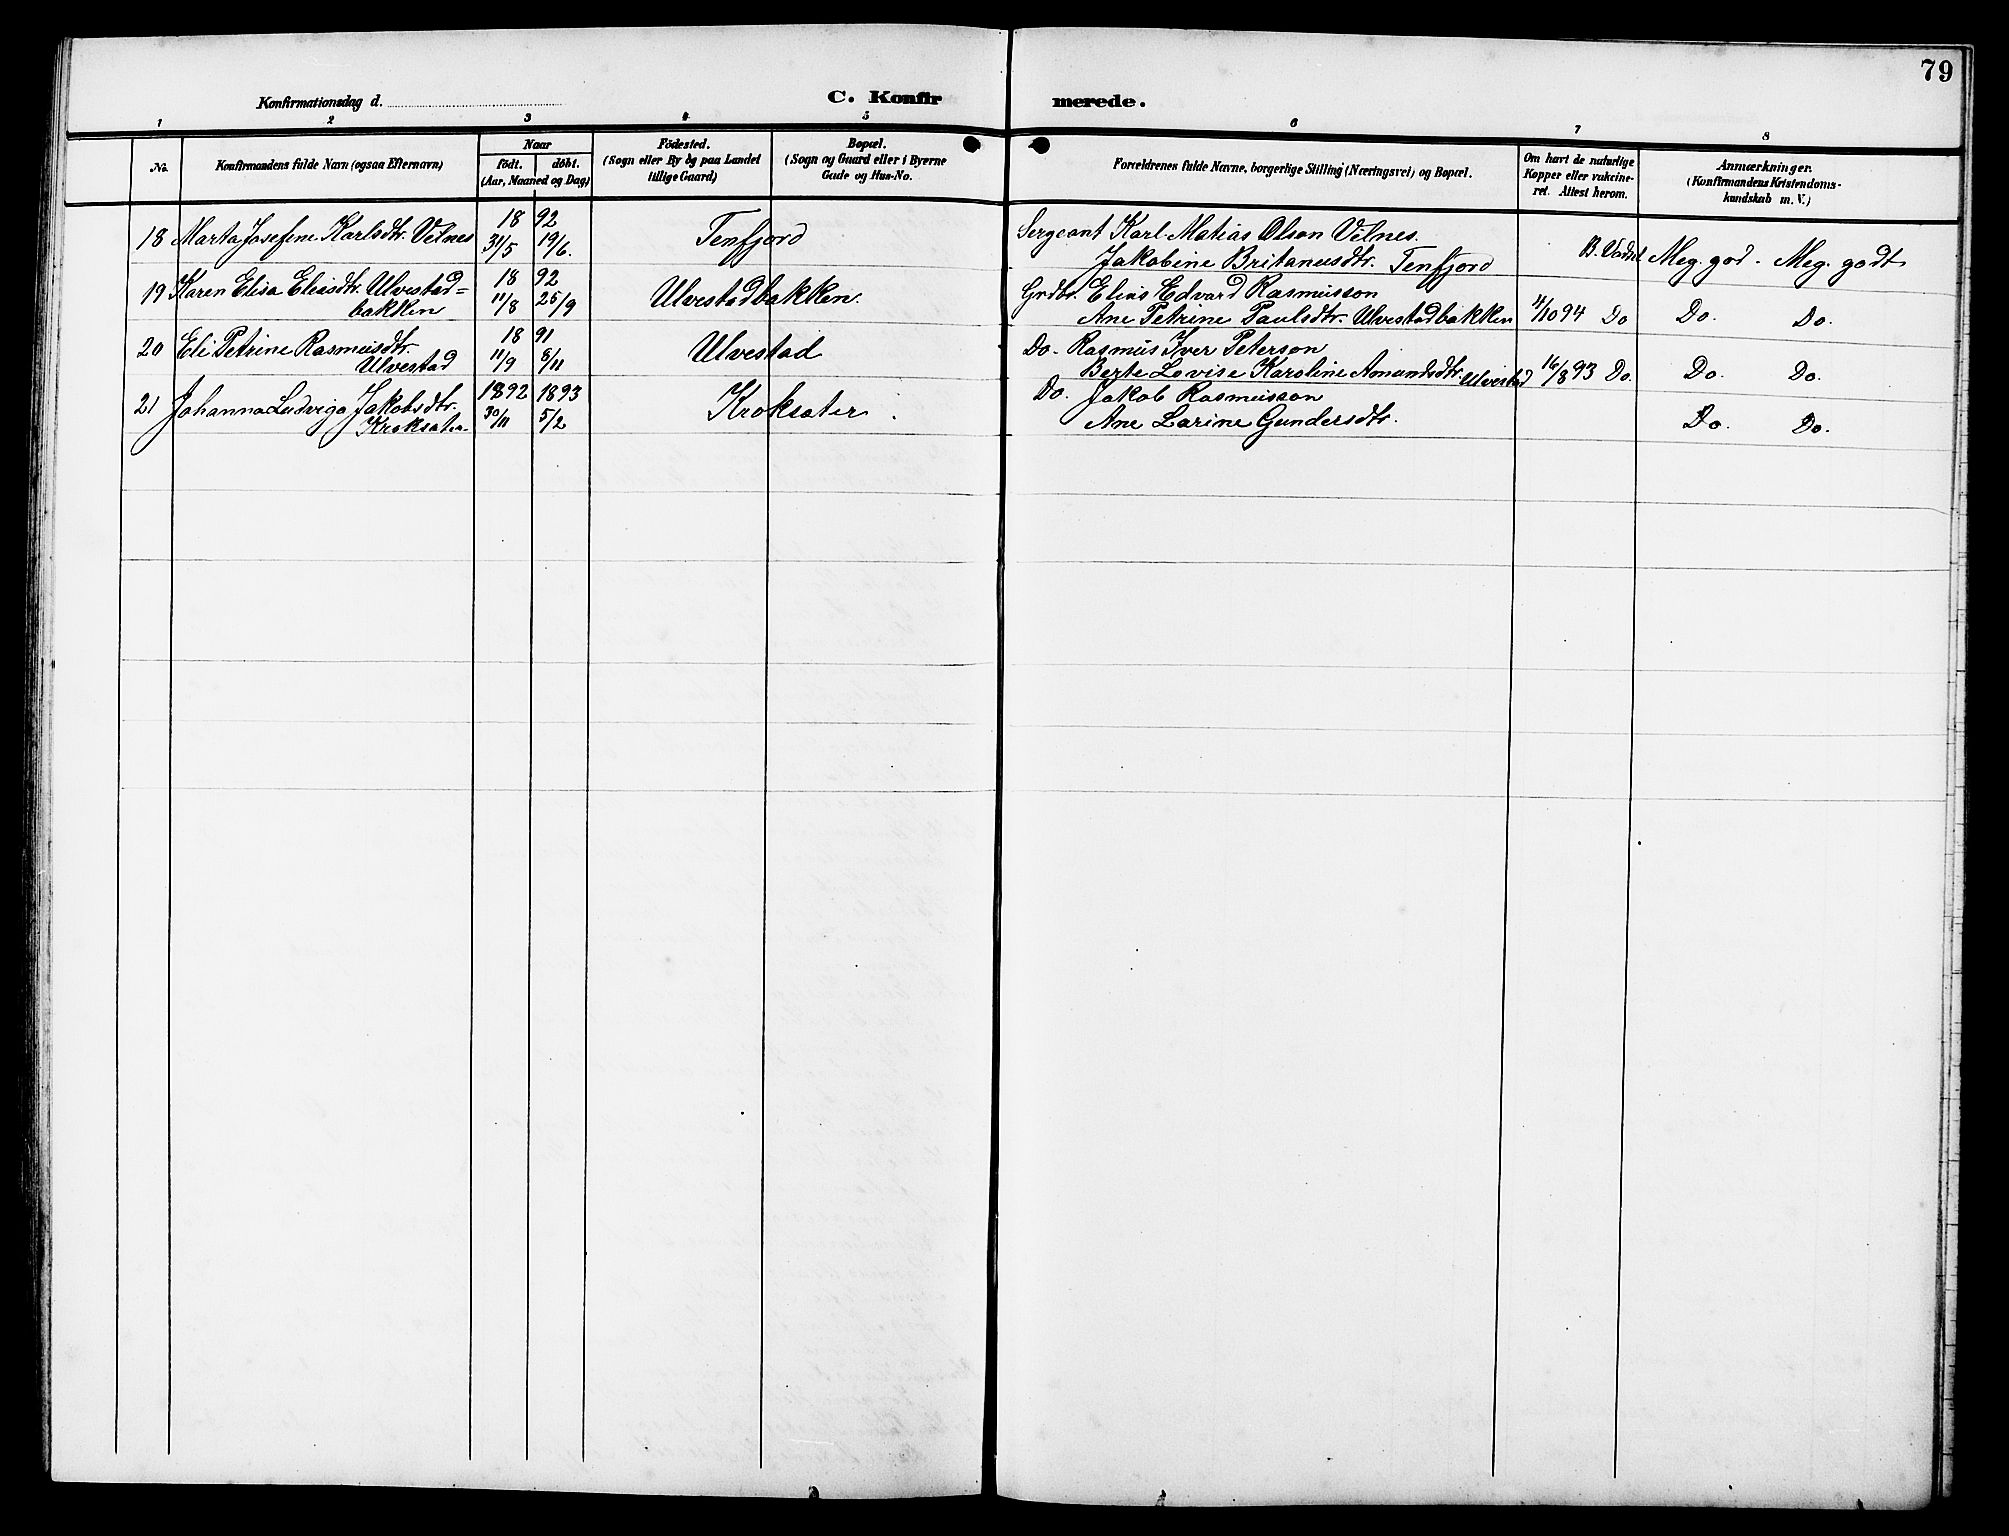 79
Konfirmationsdag d.
C. Konfirmerede.
1 2 3 4 5 6 7 8
No.
Konfirmandens fulde Navn (ogsaa Efternavn)
Naar
födt. döbt.
(Aar, Maaned og Dag)
Födested.
(Sogn eller By og paa Landet
tillige Gaard)
Bopæl.
(Sogn og Gaard eller i Byerne
Gade og Hus-No.
Forældrenes fulde Navne, borgerlige Stilling (Næringsvei) og Bopæl.
Om havt de naturlige
Kopper eller vakcine-
ret. Attest herom.
Anmærkninger.
(Konfirmandens Kristendoms-
kundskab m. V.)
18 Marta Josefine Karlsdtr. Velnes 18 92 Tenfjord Sergeant Karl Matias Olson Velnes.
31/5 19/6. Jakobine Britanusdtr. Tenfjord Meg. god. Meg. godt
19 Karen Elisa Eliasdtr. Ulvestad= 18 92 Ulvestadbakken. Grdbr. Elias Edvard Rasmusson
bakken 11/8 25/9 Ane Petrine Paulsdtr. Ulvestadbakken 11/10 94 Do Do. Do.
20 Eli Petrine Rasmusdtr. 18 91 Ulvestad Do. Rasmus Iver Peterson
Ulvestad 11/9 8/11 Berte Lovise Karoline Amundsdtr. Ulvestad 16/8 93 Do. Do. Do.
21 Johanna Ludviga Jakobsdtr. 1892 1893 Kroksater. Do. Jakob Rasmusson
Kroksater 30/11 5/2 Ane Larine Gundersdtr. Do. Do.